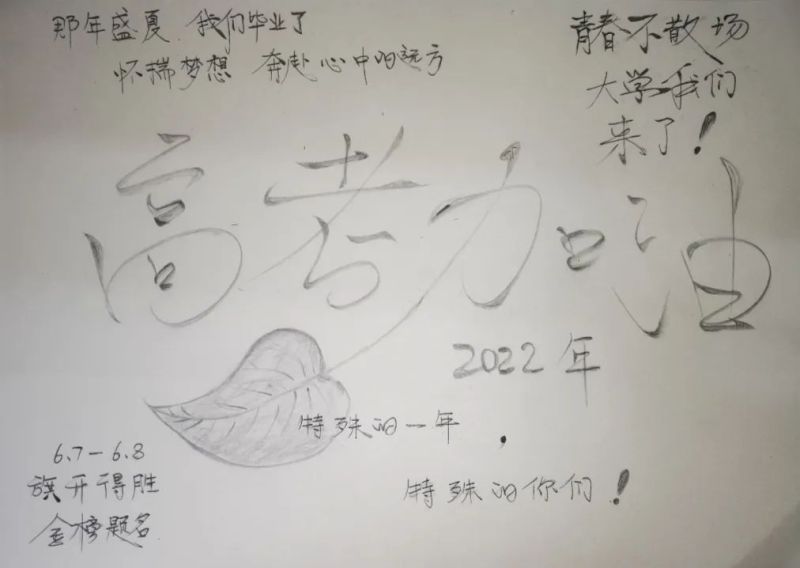 那年盛夏 我们毕业了
怀揣梦想 奔赴心中的远方
青春不散场
大学我们
来了！
高考加油
2022年
特殊的一年，
特殊的你们！
6.7-6.8
旗开得胜
金榜题名